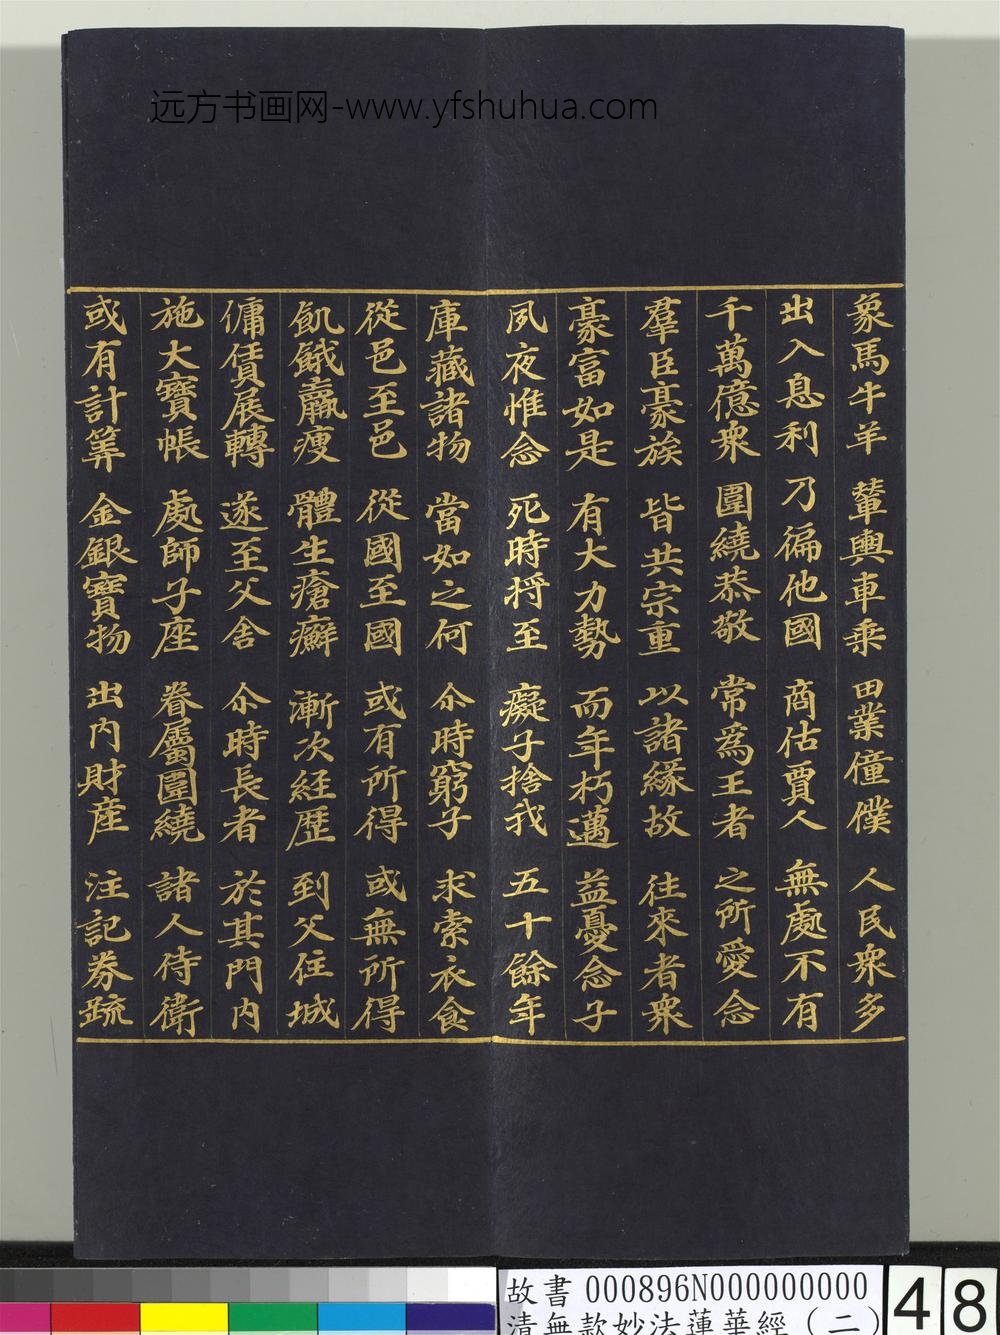 远方书画网-www.yfshuhua.com
象馬牛羊 輦輿車乗 田業僮僕 人民衆多
出入息利 乃徧他國 商估賈人 無處不有
千萬億衆 圍繞恭敬 常爲王者 之所愛念
羣臣豪族 皆共宗重 以諸緣故 往來者衆
豪富如是 有大力勢 而年朽邁 益憂念子
夙夜惟念 死時将至 癡子捨我 五十餘年
庫藏諸物 當如之何 尒時窮子 求索衣食
從邑至邑 從國至國 或有所得 或無所得
飢餓羸瘦 體生瘡癬 漸次経歴 到父住城
傭賃展轉 遂至父舍 尒時長者 於其門内
施大寶帳 處師子座 眷屬圍繞 諸人侍衛
或有計筭 金銀寶物 出内財産 注記券疏
故書 000896N000000000
清無款妙法蓮華經（二）
48